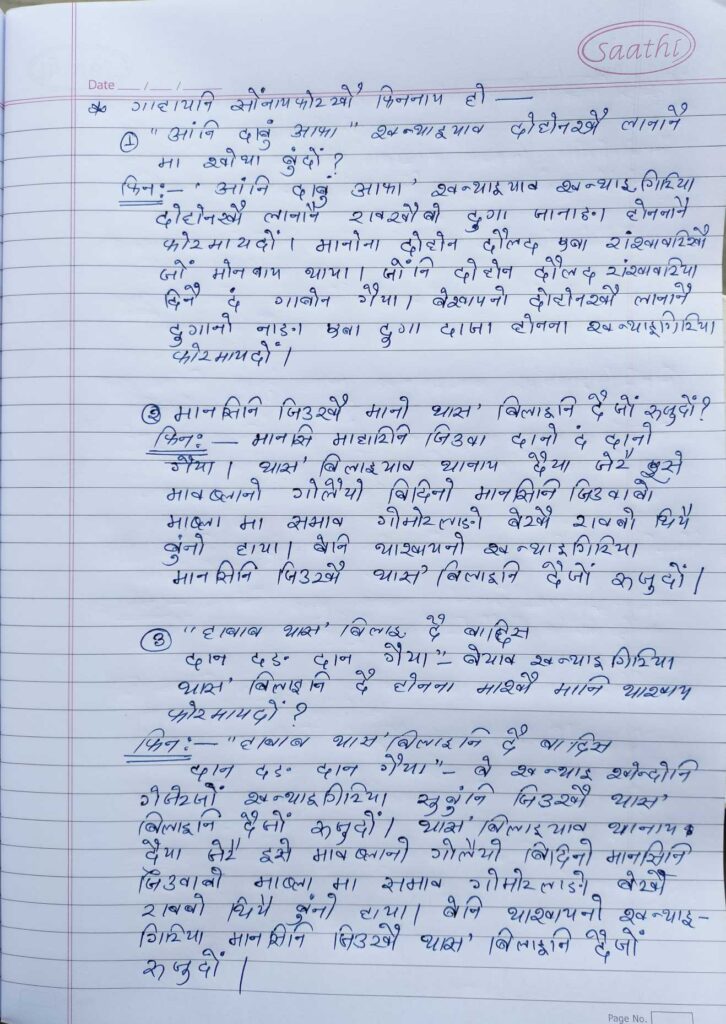 Saathi
Date __/__/__
* गाहायनि सोंनायफोरखौ फिननाय हो —
① "आंनि दाबुं आफा" खन्थाइयाव दोहोनखौ लानानै
मा खोथा बुंदों?
फिन:- 'आंनि दाबुं आफा' खन्थाइयाव खन्थाइगिरिया
दोहोनखौ लानानै रावखौबो दुगा जानाङा होननानै
फोरमायदों। मानोना दोहोन दौलद एबा रांखावरिखौ
जों मोनबाय थाया। जोंनि दोहोन दौलद रांखावरिया
दिनै दं गाबोन गैया। बेखायनो दोहोनखौ लानानै
दुगानो नाङा एबा दुगा दाजा होनना खन्थाइगिरिया
फोरमायदों।
② मानसिनि जिउखौ मानो थास' बिलाइनि दैजों रुजुदों?
फिन: — मानसि माहारिनि जिउवा दानो दं दानो
गैया। थास' बिलाइयाव थानाय दैया जेरै इसे
मावब्लानो गोलैयो बिदिनो मानसिनि जिउवाबो
माब्ला मा समाव गोमोरलाङो बेखौ रावबो थियै
बुंनो हाया। बेनि थाखायनो खन्थाइगिरिया
मानसिनि जिउखौ थास' बिलाइनि दैजों रुजुदों।
③ "हाबाब थास' बिलाइ दै बादिस
दान दङ दान गैया" - बेयाव खन्थाइगिरिया
थास' बिलाइनि दै होनना माखौ मानि थाखाय
फोरमायदों?
फिन:- "हाबाब थास' बिलाइनि दै बादिस
दान दङ दान गैया" - बे खन्थाइ खोन्दोनि
गेजेरजों खन्थाइगिरिया सुबुंनि जिउखौ थास'
बिलाइनि दैजों रुजुदों। थास' बिलाइयाव थानाय
दैया जेरै इसे मावब्लानो गोलैयो बिदिनो मानसिनि
जिउवाबो माब्ला मा समाव गोमोरलाङो बेखौ
रावबो थियै बुंनो हाया। बेनि थाखायनो खन्थाइ-
गिरिया मानसिनि जिउखौ थास' बिलाइनि दैजों
रुजुदों।
Page No.